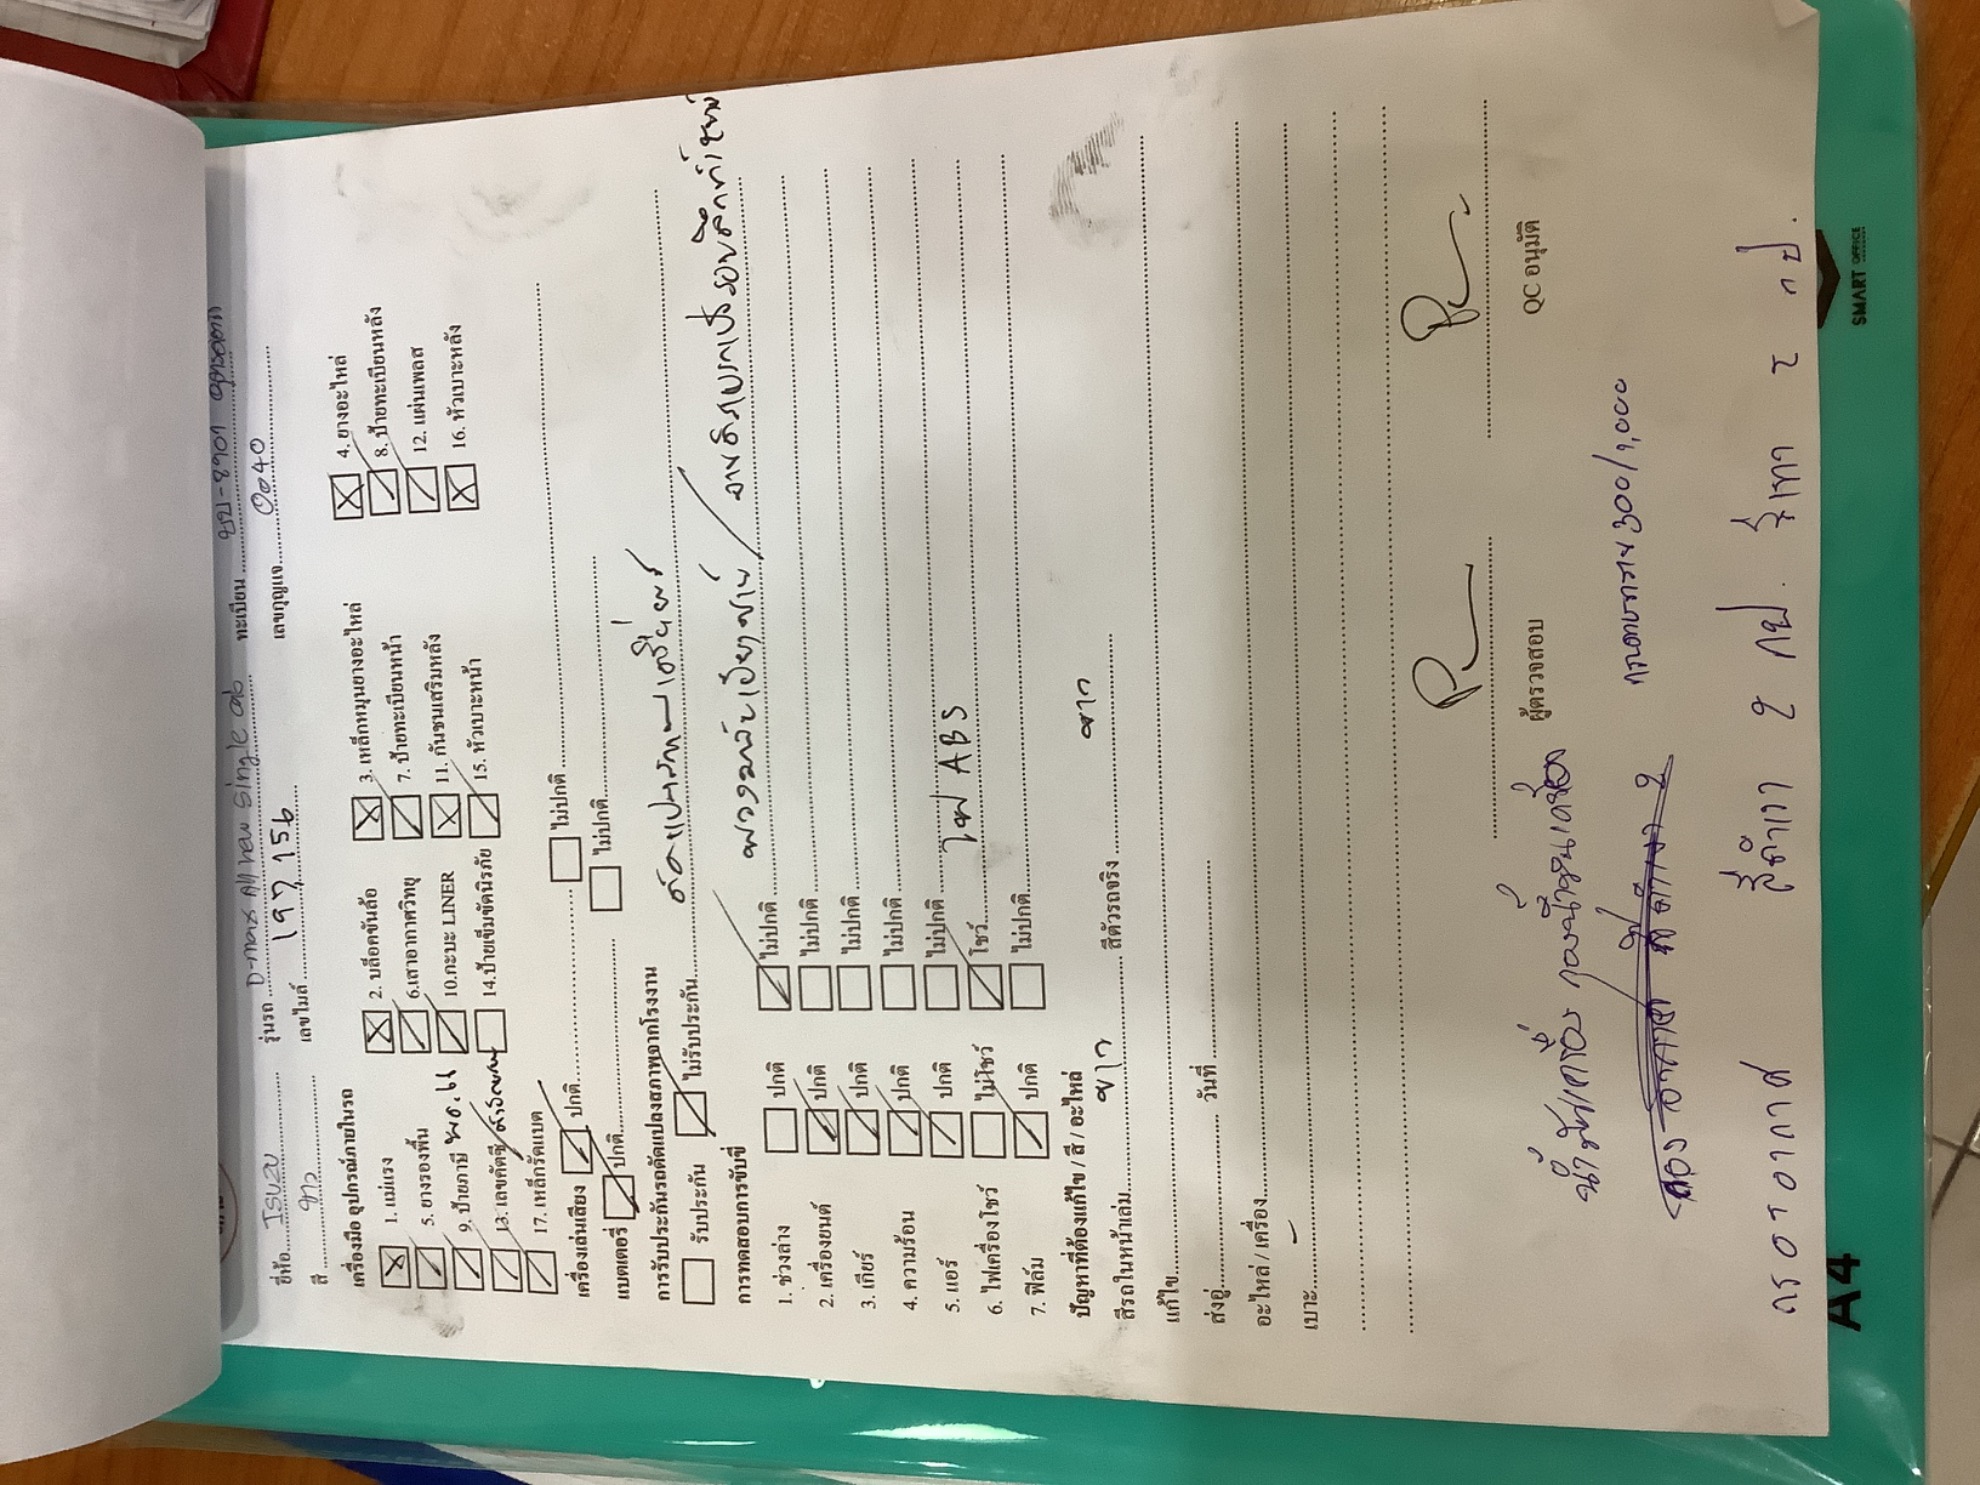 ยี่ห้อ ISUZU รุ่นรถ D-max All new single ทะเบียน บบ-8901
สี ขาว เลขไมล์ 197 156 เลขกุญแจ 0040
เครื่องมือ อุปกรณ์ภายในรถ
1. แม่แรง 2. บล็อคขันล้อ 3. เหล็กหมุนยางอะไหล่ 4. ยางอะไหล่
5. ยางรองพื้น 6.เสาอากาศวิทยุ 7. ป้ายทะเบียนหน้า 8. ป้ายทะเบียนหลัง
9. ป้ายภาษี 10.กะบะ LINER 11. กันชนเสริมหลัง 12. แผ่นเพลส
13. เลขคัตซี 14.ป้ายเข็มขัดนิรภัย 15. หัวเบาะหน้า 16. หัวเบาะหลัง
17. เหล็กรัดแบต
เครื่องเล่นเสียง ปกติ ไม่ปกติ
แบตเตอรี่ ปกติ ไม่ปกติ
การรับประกันรถดัดแปลงสภาพจากโรงงาน
รับประกัน ไม่รับประกัน
การทดสอบการขับขี่
1. ช่วงล่าง ปกติ ไม่ปกติ
2. เครื่องยนต์ ปกติ ไม่ปกติ
3. เกียร์ ปกติ ไม่ปกติ
4. ความร้อน ปกติ ไม่ปกติ
5. แอร์ ปกติ ไม่ปกติ
6. ไฟเครื่องโชว์ ไม่โชว์ โชว์ ไฟ ABS
7. ฟิล์ม ปกติ ไม่ปกติ
ปัญหาที่ต้องแก้ไข / สี / อะไหล่
สีรถในหน้าเล่ม ขาว สีตัวรถจริง ขาว
แก้ไข
ส่งอู่ วันที่
อะไหล่ / เครื่อง
เบาะ
ผู้ตรวจสอบ QC อนุมัติ
น้ำมันเครื่อง
300/1,000
กรองอากาศ สีดำเทา 2 กป. สีเทา 2 กป.
A4
SMART OFFICE